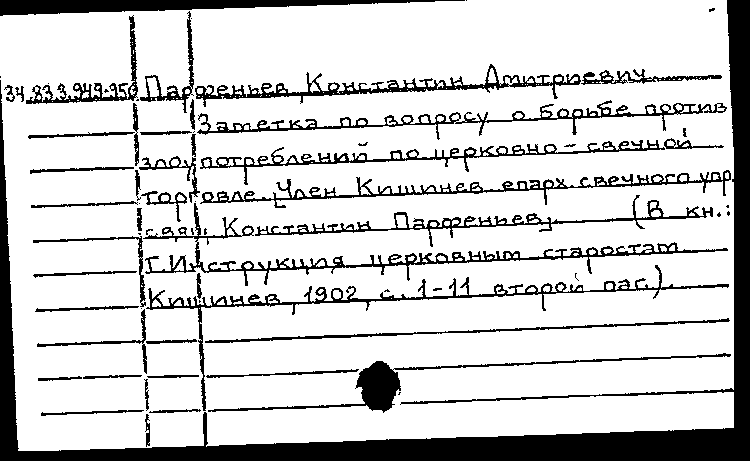 34.83.3.949-950 Парфеньев, Константин Дмитриевич
Заметка по вопросу о борьбе против
злоупотреблений по церковно-свечной
торговле. [Член Кишинев епарх. свечного упр.
свящ. Константин Парфеньев]. (В кн.:
Г. Инструкция церковным старостам.
Кишинев, 1902, с. 1-11 второй паг.).